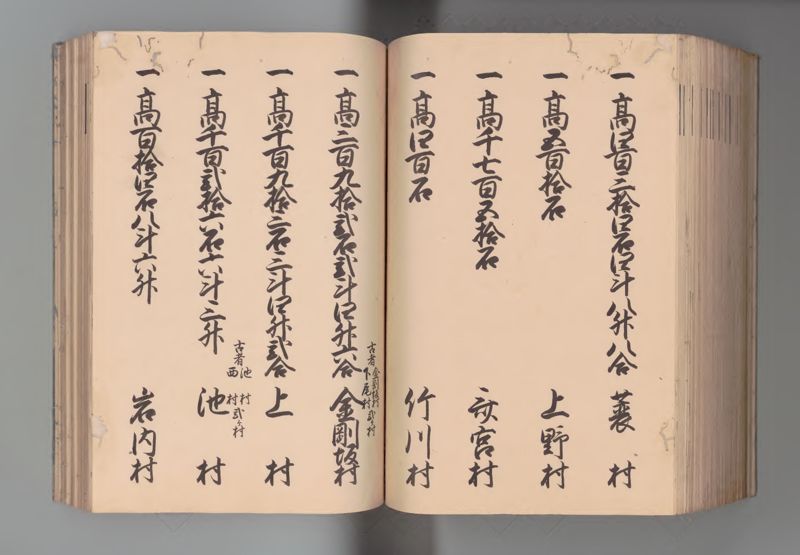 一 髙四百三拾四石四斗八升八合 蓑村
一 髙五百拾石 上野村
一 髙千七百五拾石 斎宮村
一 髙四百石 竹川村
古者 金剛坂村
下尾村 弐ケ村
一 髙三百九拾弐石弐斗四升六合 金剛坂村
一 髙千百九拾三石三斗四升弐合 上村
古者 池村
西村 弐ケ村
一 髙千百弐拾六石六斗三升 池村
一 髙百拾四石八斗六升 岩内村